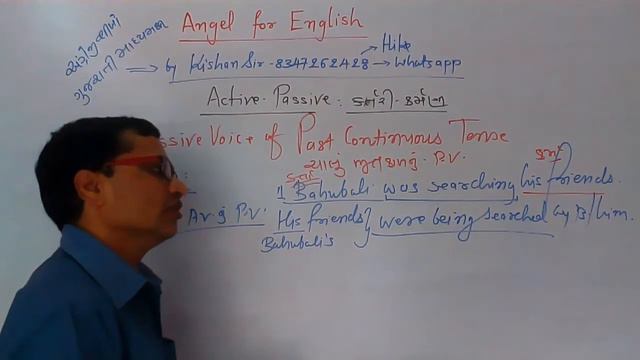 Angel for English
અંગ્રેજીમાં
ગુજરાતી માધ્યમના
by Kishan Sir - 8347262428 → Hike
→ Whatsapp
Active-Passive : કર્તરી-કર્મણી
ssive Voice of Past Continuous Tense
ચાલુ ભૂતકાળનું P.V.
કર્તા
કર્મ
1 Bahubali was searching his friends.
Av નું P.V. His friends } were being searched by B/him.
Bahubali's